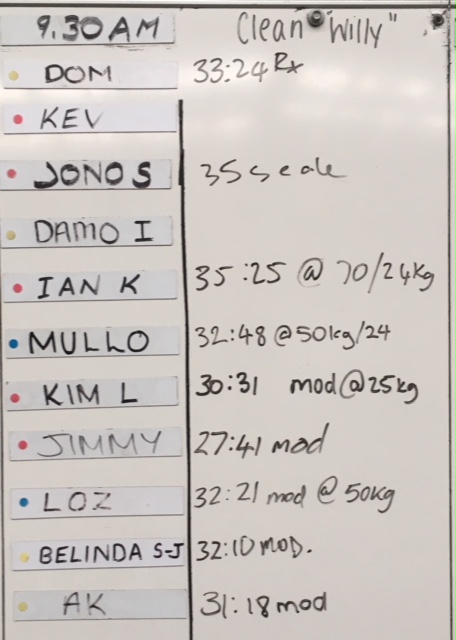 9.30AM Clean "Willy"
DOM 33:24 Rx
KEV
JONO S 35 scale
DAMO I
IAN K 35:25 @ 70/24kg
MULLO 32:48 @50kg/24
KIM L 30:31 mod@25kg
JIMMY 27:41 mod
LOZ 32:21 mod @ 50kg
BELINDA S-J 32:10 MOD.
AK 31:18 mod